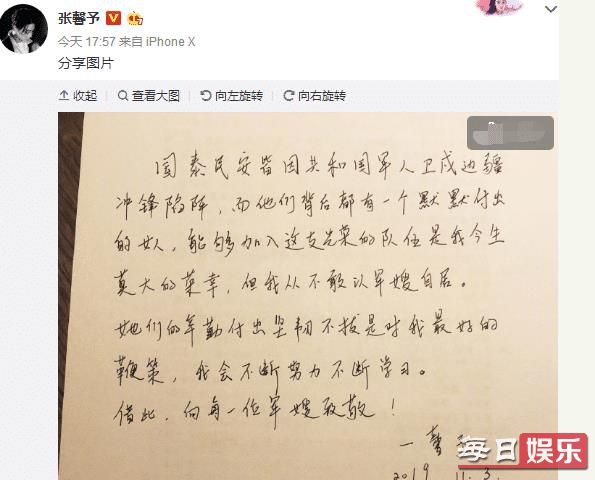 张馨予
今天 17:57 来自 iPhone X
分享图片
收起 查看大图 向左旋转 向右旋转
国泰民安皆因共和国军人卫戍边疆
冲锋陷阵，而他们背后都有一个默默付出
的女人，能够加入这支光荣的队伍是我今生
莫大的荣幸，但我从不敢以军嫂自居。
她们的辛勤付出坚韧不拔是对我最好的
鞭策，我会不断努力不断学习。
借此，向每一位军嫂致敬！
一馨
2019 11.3.
每日娱乐